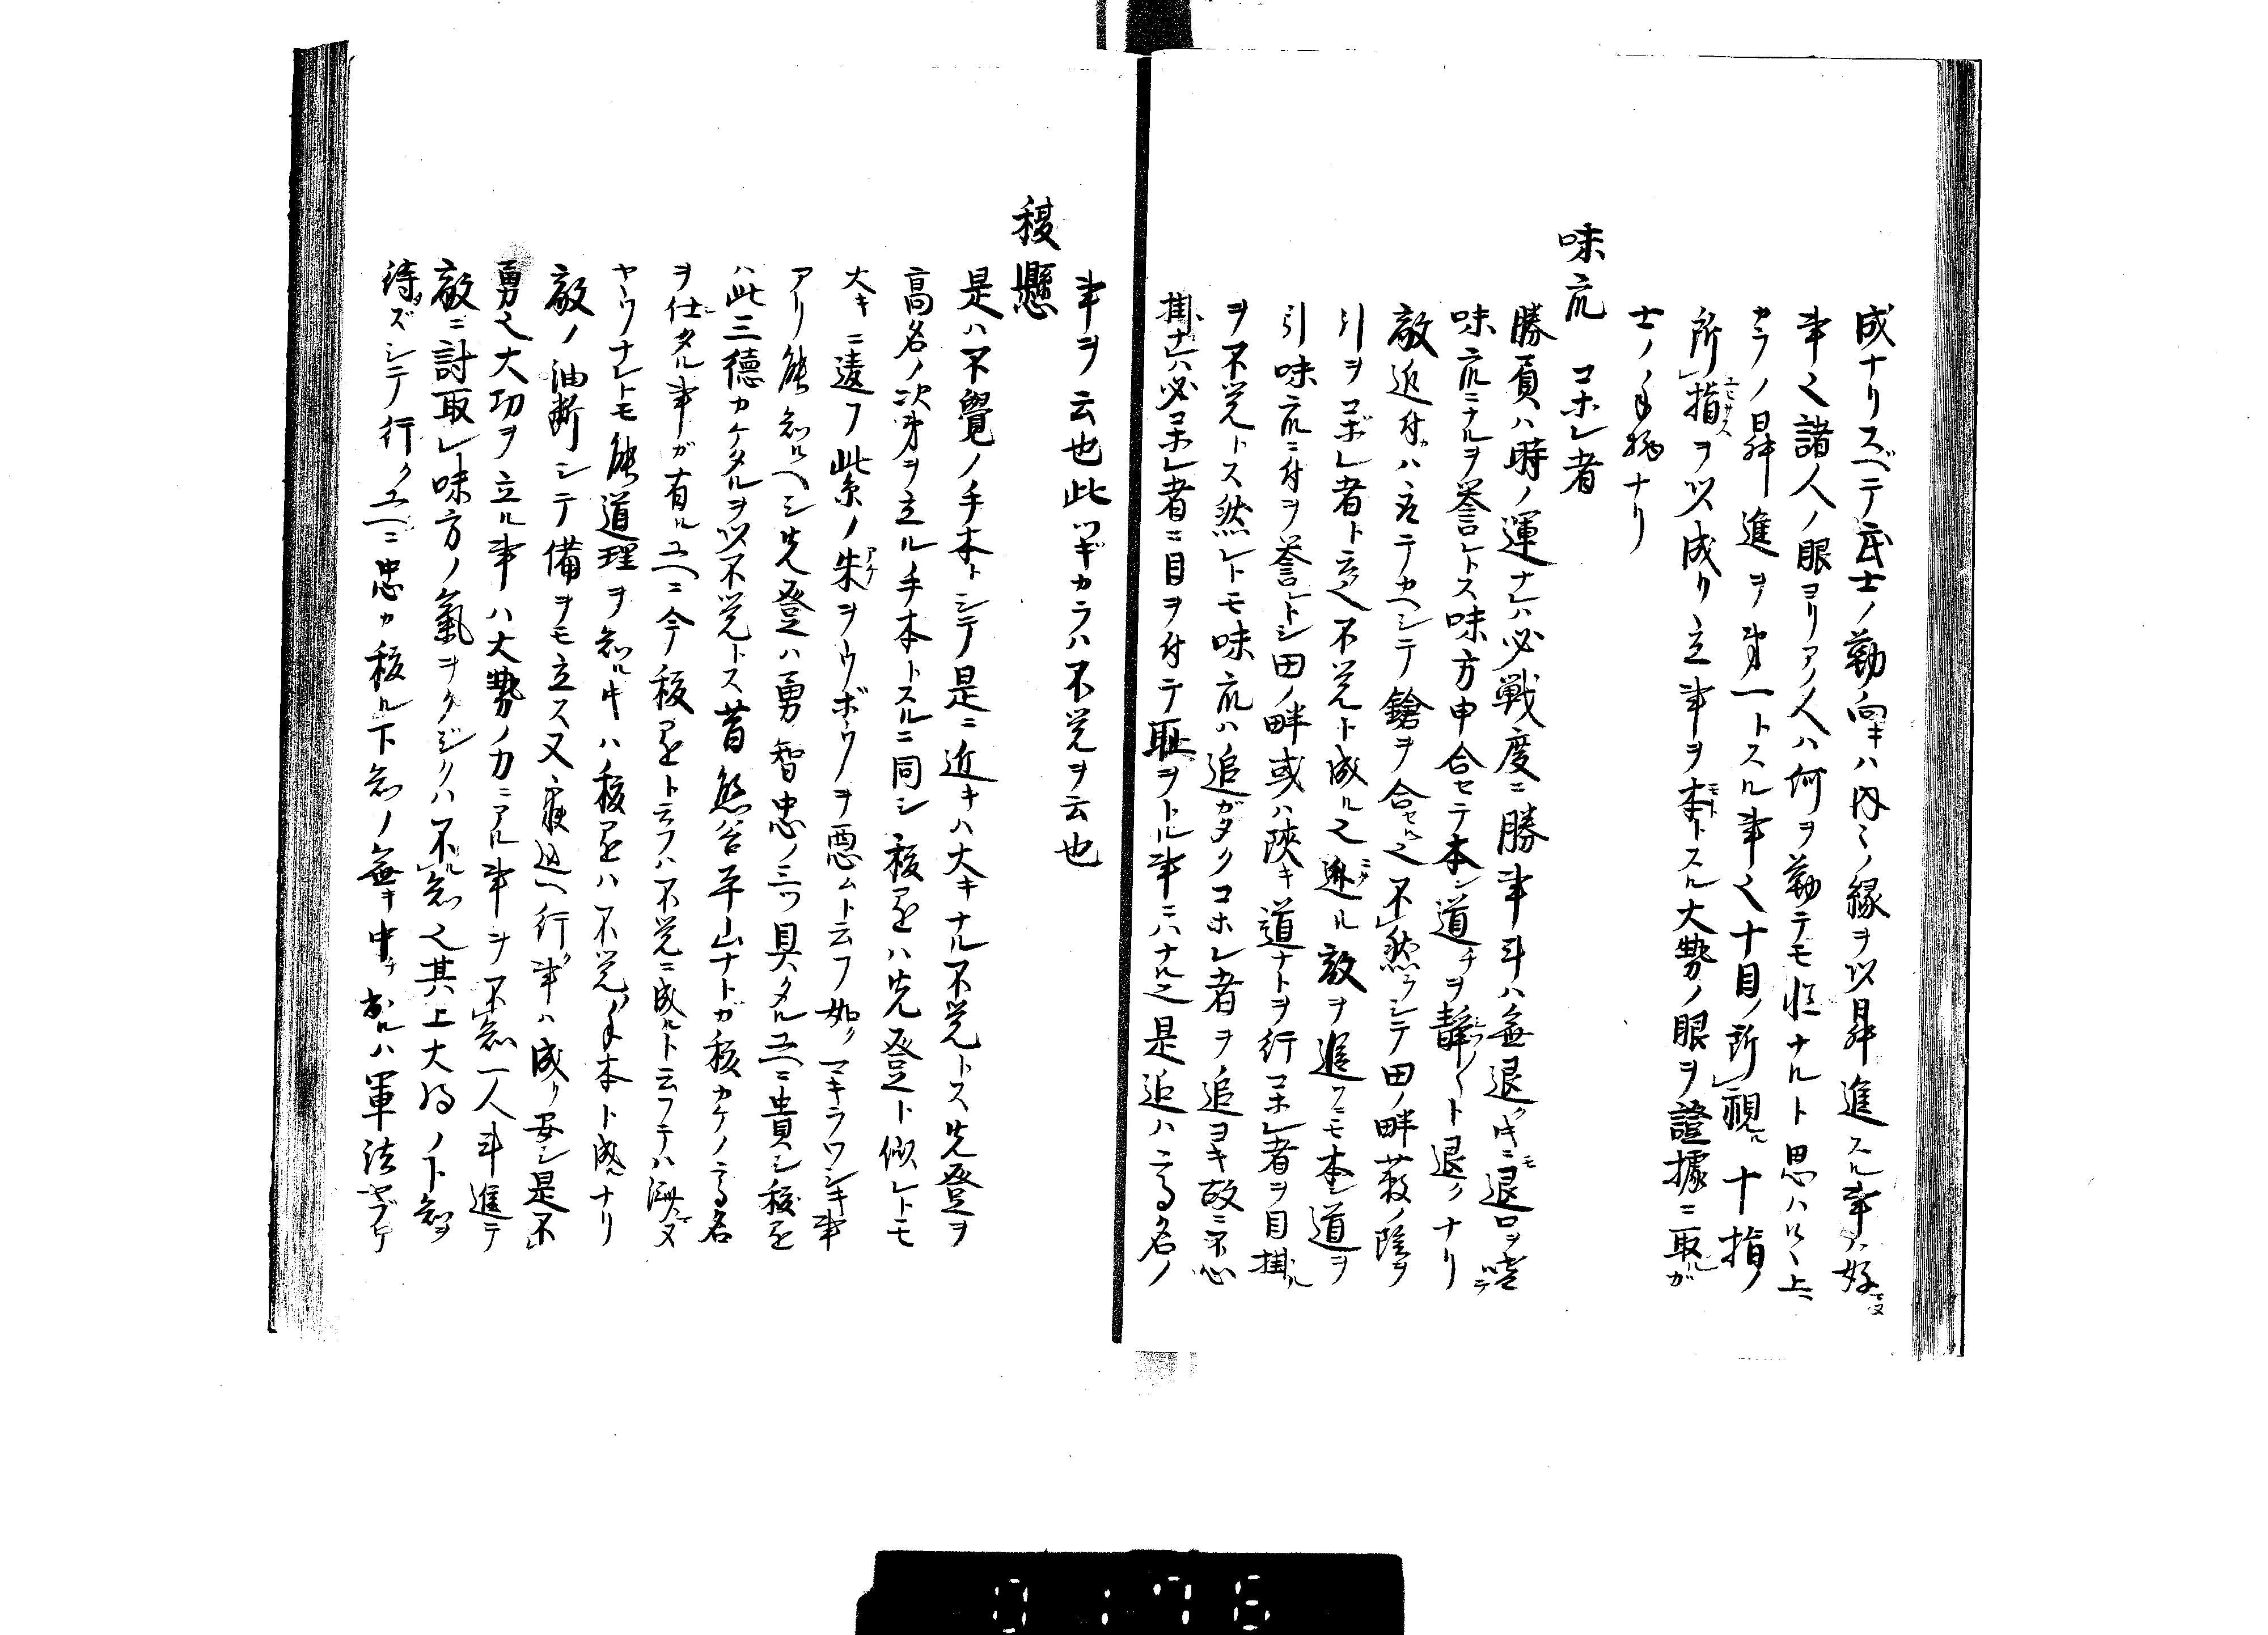 成ナリスベテ武士ノ勤向キハ内々ノ縁ヲ以昇進スル事ハ好マヌ
事也諸人ノ眼ヨリアノ人ハ何ヲ勤テモ ナルト思ハレ上
カラノ昇進ヲ第一トスル事也十目ノ所視ル十指ノ
所指ユビサスヲ以成リ立事ヲ本モトトスル大勢ノ眼ヲ證據ニ取ルガ
士ノ手柄ナリ
味亢 コボレ者
勝負ハ時ノ運ナレハ必戦度ニ勝事斗ハ無退ク时ニモ退口ヲ テ
味亢ニナルヲ誉レトス味方申合セテ本ン道チヲ静々ト退クナリ
敵近付カハ テカヘシテ鎗ヲ合セル也不然ラシテ田ノ畔薮ノ陰ヲ
引ヲコボレ者ト云也不覚ト成ル也逃ニクル敵ヲ追フニモ本ン道ヲ
引味亢ニ付ヲ誉レトシ田ノ畔或ハ陜キ道ナトヲ行コボレ者ヲ目掛ル
ヲ不覚トス然レトモ味亢ハ追ガタクコホレ者ヲ追ヨキ故ニ不心
掛ナレハ必コボレ者ニ目ヲ付テ恥ヲトル事ニハナル也是追ハ高名ノ
事ヲ云也此ツギカラハ不覚ヲ云也
稷懸
是ハ不覺ノ手本トシテ是ニ近キハ大キナル不覚トス先登ヲ
高名ノ次第ヲ立ル手本トスルニ同シ稷 ハ先登ト似レトモ
大キニ違フ此糸ノ朱アケヲウボウヲ悪ムト云フ如クマキラワシキ事
アリ能知ルヘシ先登ハ勇智忠ノ三ツ具ハタルユヘニ貴シ稷
ハ此三徳カケタルヲ以不覚トス昔熊谷平山ナトガ稷カケノ高名
ヲ仕シタル事ガ有ルユヘニ今稷 トテフハ不覚ニ成ルト云フテハ済マヌ
ヤウナレトモ能道理ヲ知ル时ハ稷 ハ不覚ノ手本ト成ルナリ
敵ノ油断シテ備ヲモ立ス又寢込ヘ行ク事ハ成リ安シ是不
勇也大功ヲ立ル事ハ大勢ノ力ニアル事ヲ不知一人斗進テ
敵ニ討取レ味方ノ氣ヲクジクハ不知也其上大将ノ下知ヲ
待タズシテ行クユヘニ忠カ稷ル下知ノ無キ中チ出ルハ軍法ヤブケ